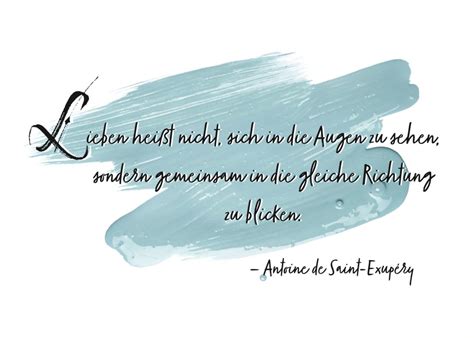 Lieben heißt nicht, sich in die Augen zu sehen,
sondern gemeinsam in die gleiche Richtung
zu blicken.
– Antoine de Saint-Exupéry